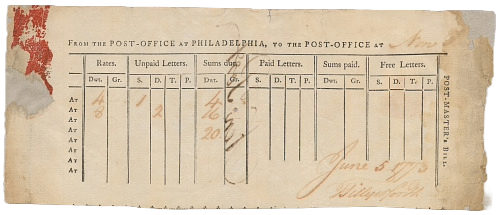 FROM THE POST-OFFICE AT PHILADELPHIA, TO THE POST-OFFICE AT New
Rates. Unpaid Letters. Sums due. Paid Letters. Sums paid. Free Letters.
Dwt. Gr. S. D. T. P. Dwt. Gr. S. D. T. P. Dwt. Gr. S. D. T. P.
AT 4 1 4
AT 8 2 16
AT 20
AT
AT
AT
AT
POST-MASTER's BILL.
June 5 1773